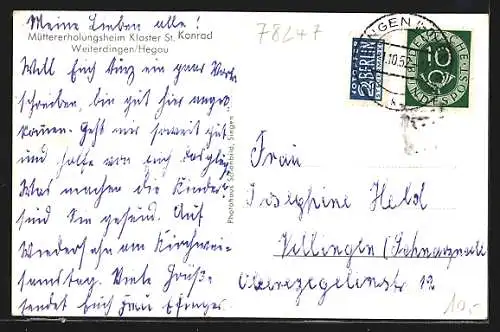 Meine Lieben alle!
78247
Müttererholungsheim Kloster St. Konrad
Weiterdingen/Hegau
Will Euch kurz ein paar Worte
schreiben, bin gut hier ange-
kommen. Geht mir soweit gut
und hoffe von euch dasgleiche
Was machen die Kinder
sind Sie gesund. Auf
Wiedersehn am Kirchwei-
samstag. Viele Grüß-
sendet Euch Frau
Photohaus Singen
NOTOPFER
2 BERLIN
STEUERMARKE
INGEN
.10.52
DEUTSCHE
BUNDESPOST
10
Frau
Josephine Held
Villingen (Schwarzwald
Oberezegelinstr 12
10,-